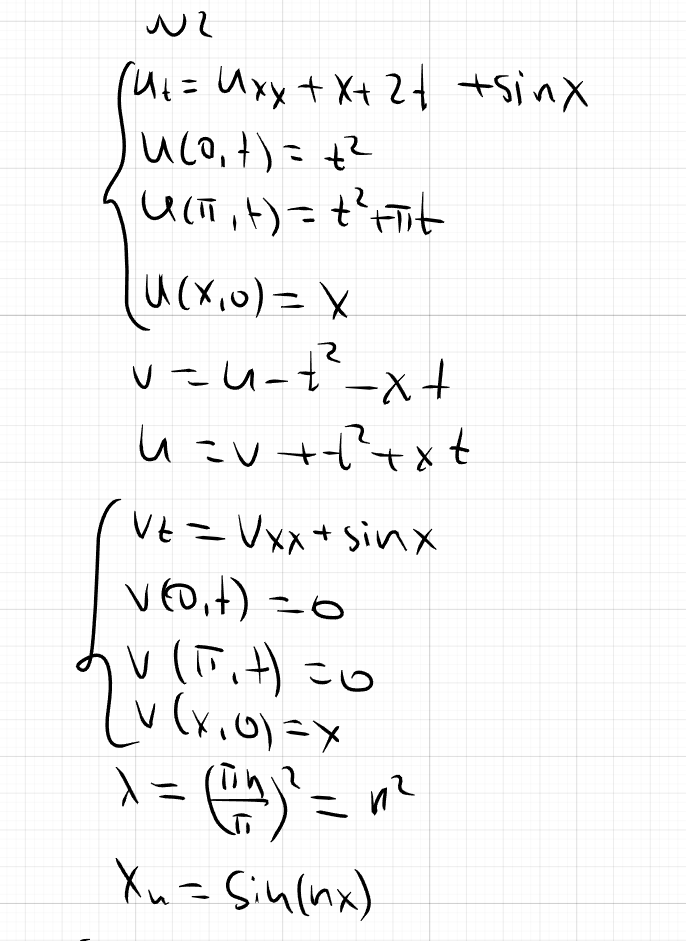 N2
u_t = u_xx + x + 2t + sin x
u(0,t) = t²
u(π,t) = t² + πt
u(x,0) = x
v = u - t² - xt
u = v + t² + xt
v_t = v_xx + sin x
v(0,t) = 0
v(π,t) = 0
v(x,0) = x
λ = (πn/π)² = n²
X_n = sin(nx)